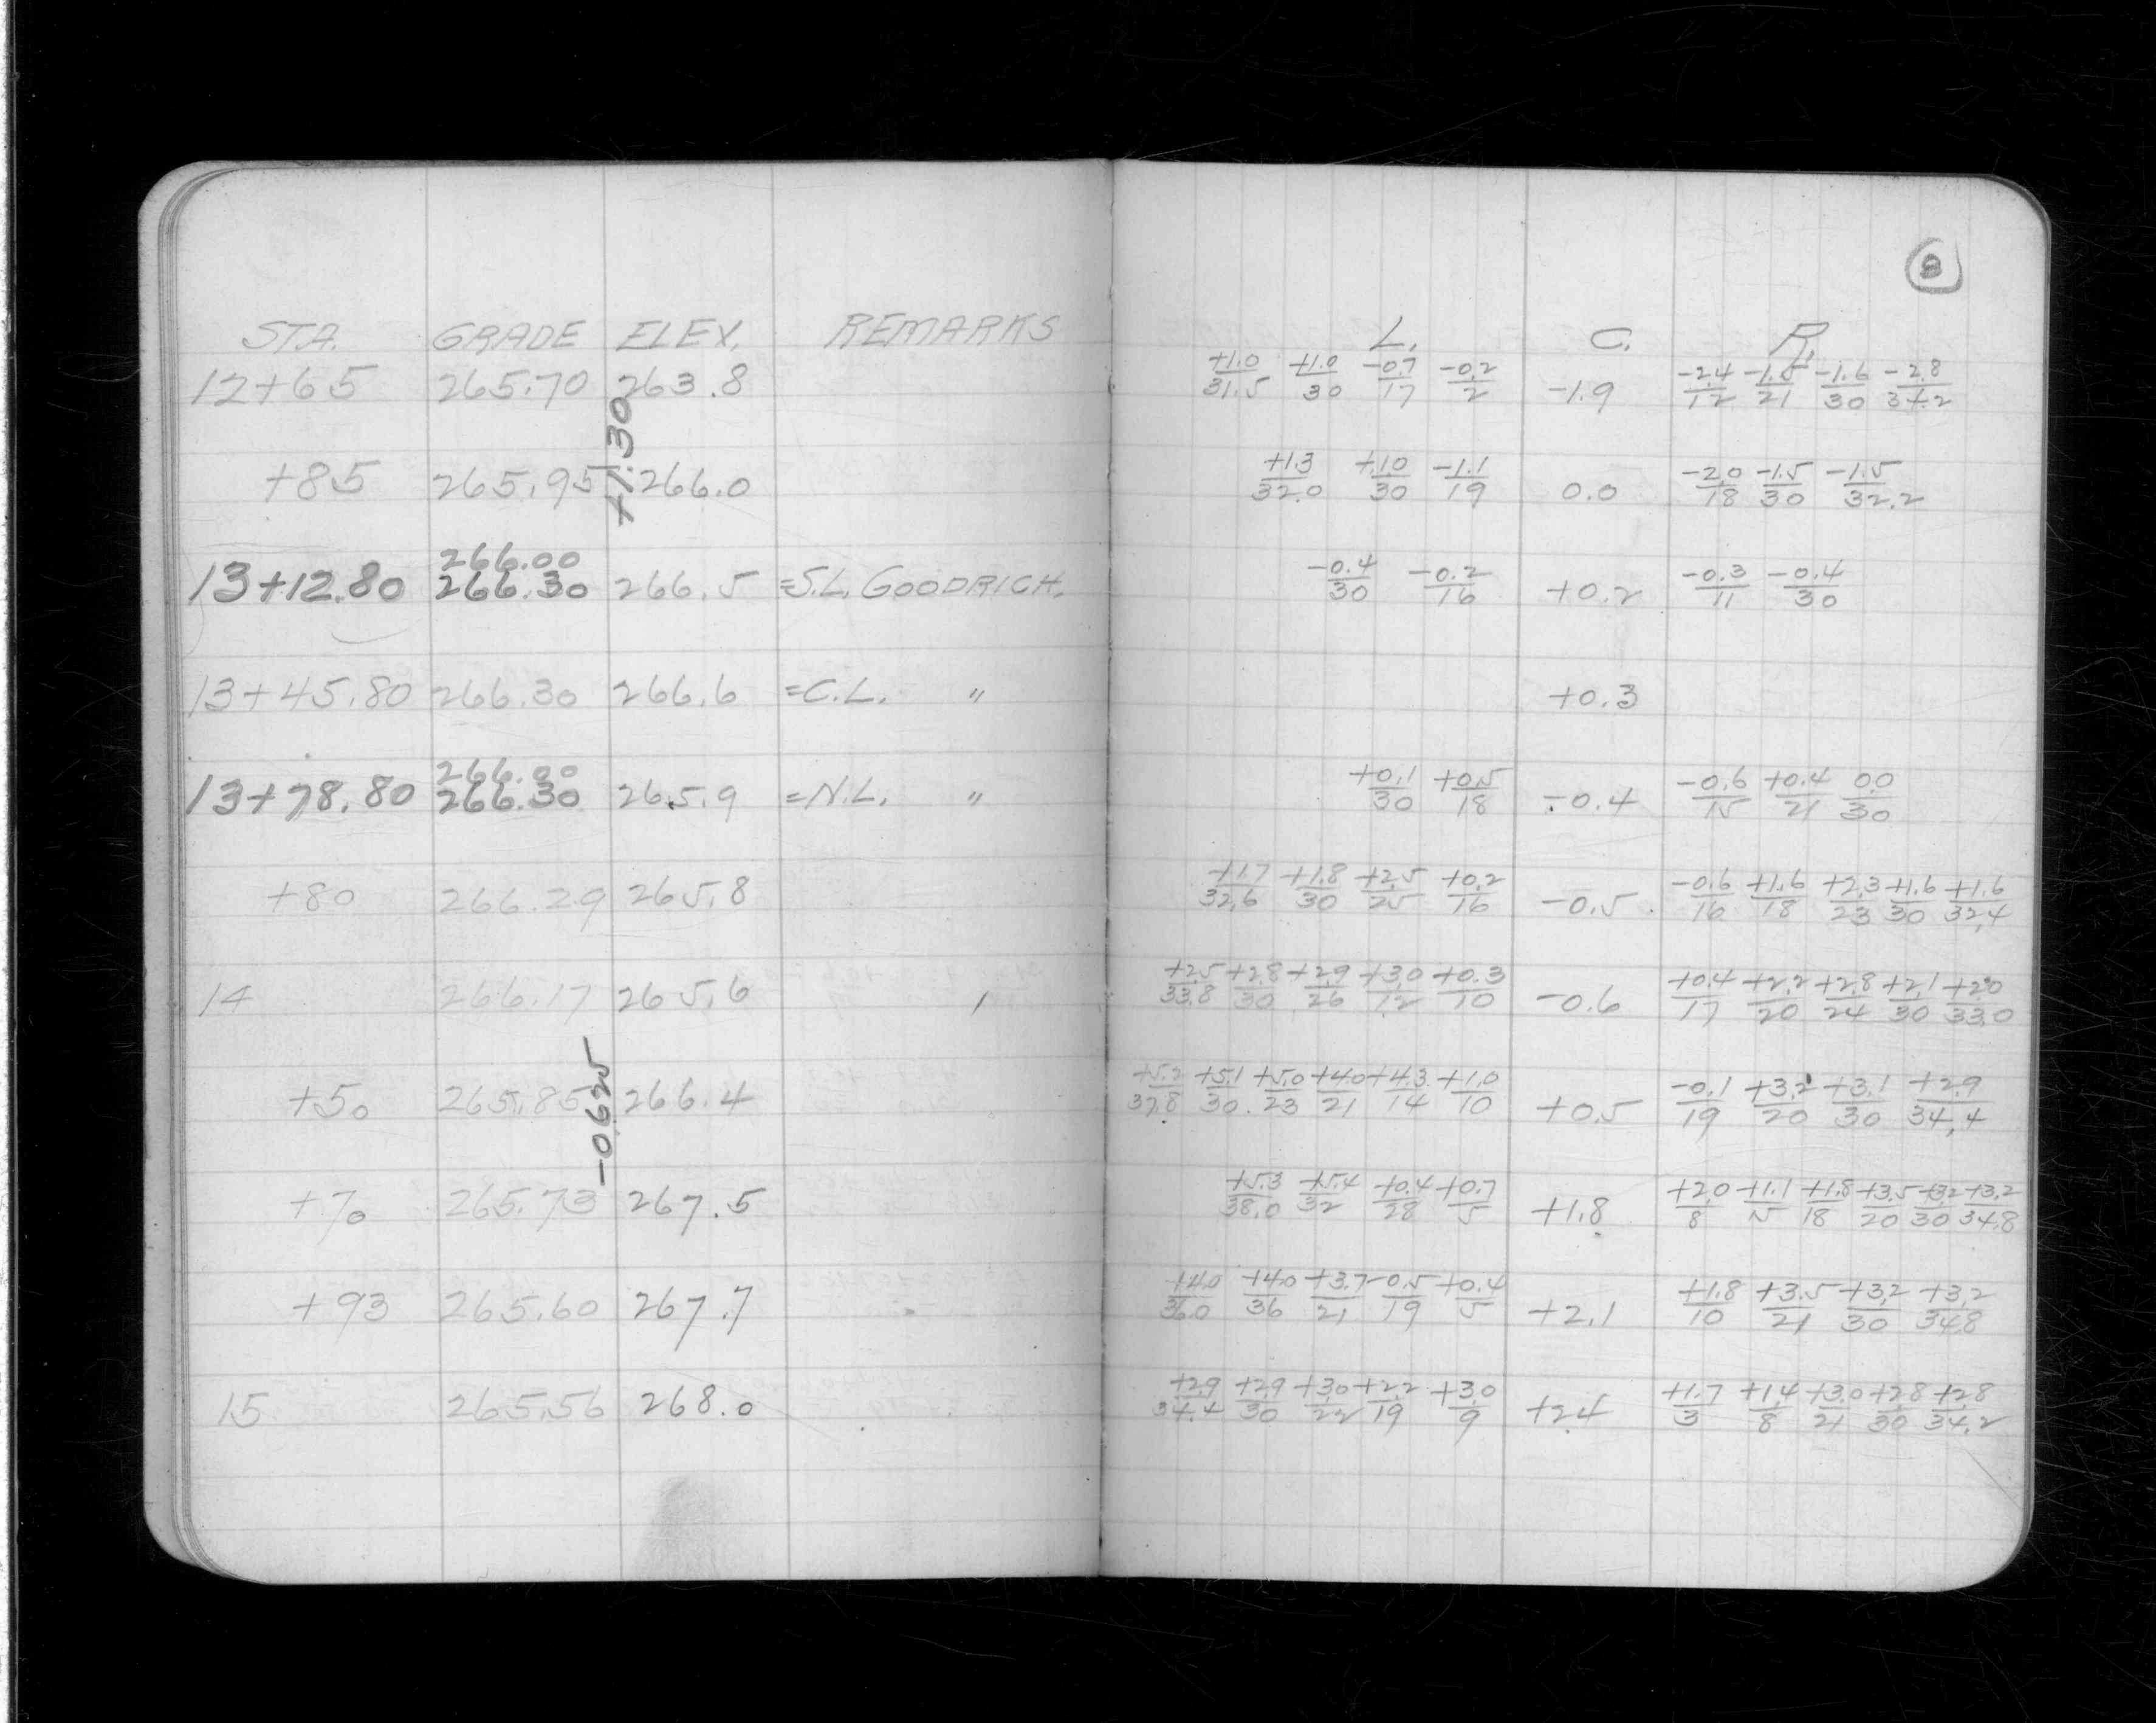 8
STA. GRADE ELEV. REMARKS L. C. R.
12+65 265.70 263.8 +1.0/31.5 +1.0/30 -0.7/17 -0.2/2 -1.9 -2.4/12 -1.5/21 -1.6/30 -2.8/34.2
+1.30
+85 265.95 266.0 +1.3/32.0 +1.0/30 -1.1/19 0.0 -2.0/18 -1.5/30 -1.5/32.2
266.00
13+12.80 266.30 266.5 =S.L. GOODRICH. -0.4/30 -0.2/16 +0.2 -0.3/11 -0.4/30
13+45.80 266.30 266.6 =C.L. " +0.3
266.00
13+78.80 266.30 265.9 =N.L. " +0.1/30 +0.5/18 -0.4 -0.6/15 +0.4/21 0.0/30
+80 266.29 265.8 +1.7/32.6 +1.8/30 +2.5/25 +0.2/16 -0.5 -0.6/16 +1.6/18 +2.3/23 +1.6/30 +1.6/32.4
14 266.17 265.6 +2.5/33.8 +2.8/30 +2.9/26 +3.0/12 +0.3/10 -0.6 +0.4/17 +2.2/20 +2.8/24 +2.1/30 +2.0/33.0
-0.625
+50 265.85 266.4 +5.2/37.8 +5.1/30 +5.0/23 +4.0/21 +4.3/14 +1.0/10 +0.5 -0.1/19 +3.2/20 +3.1/30 +2.9/34.4
+70 265.73 267.5 +5.3/38.0 +5.4/32 +0.4/28 +0.7/5 +1.8 +2.0/8 +1.1/15 +1.8/18 +3.5/20 +3.2/30 +3.2/34.8
+93 265.60 267.7 +4.0/36.0 +4.0/36 +3.7/21 -0.5/19 +0.4/5 +2.1 +1.8/10 +3.5/21 +3.2/30 +3.2/34.8
15 265.56 268.0 +2.9/34.4 +2.9/30 +3.0/22 +2.2/19 +3.0/9 +2.4 +1.7/3 +1.4/8 +3.0/21 +2.8/30 +2.8/34.2